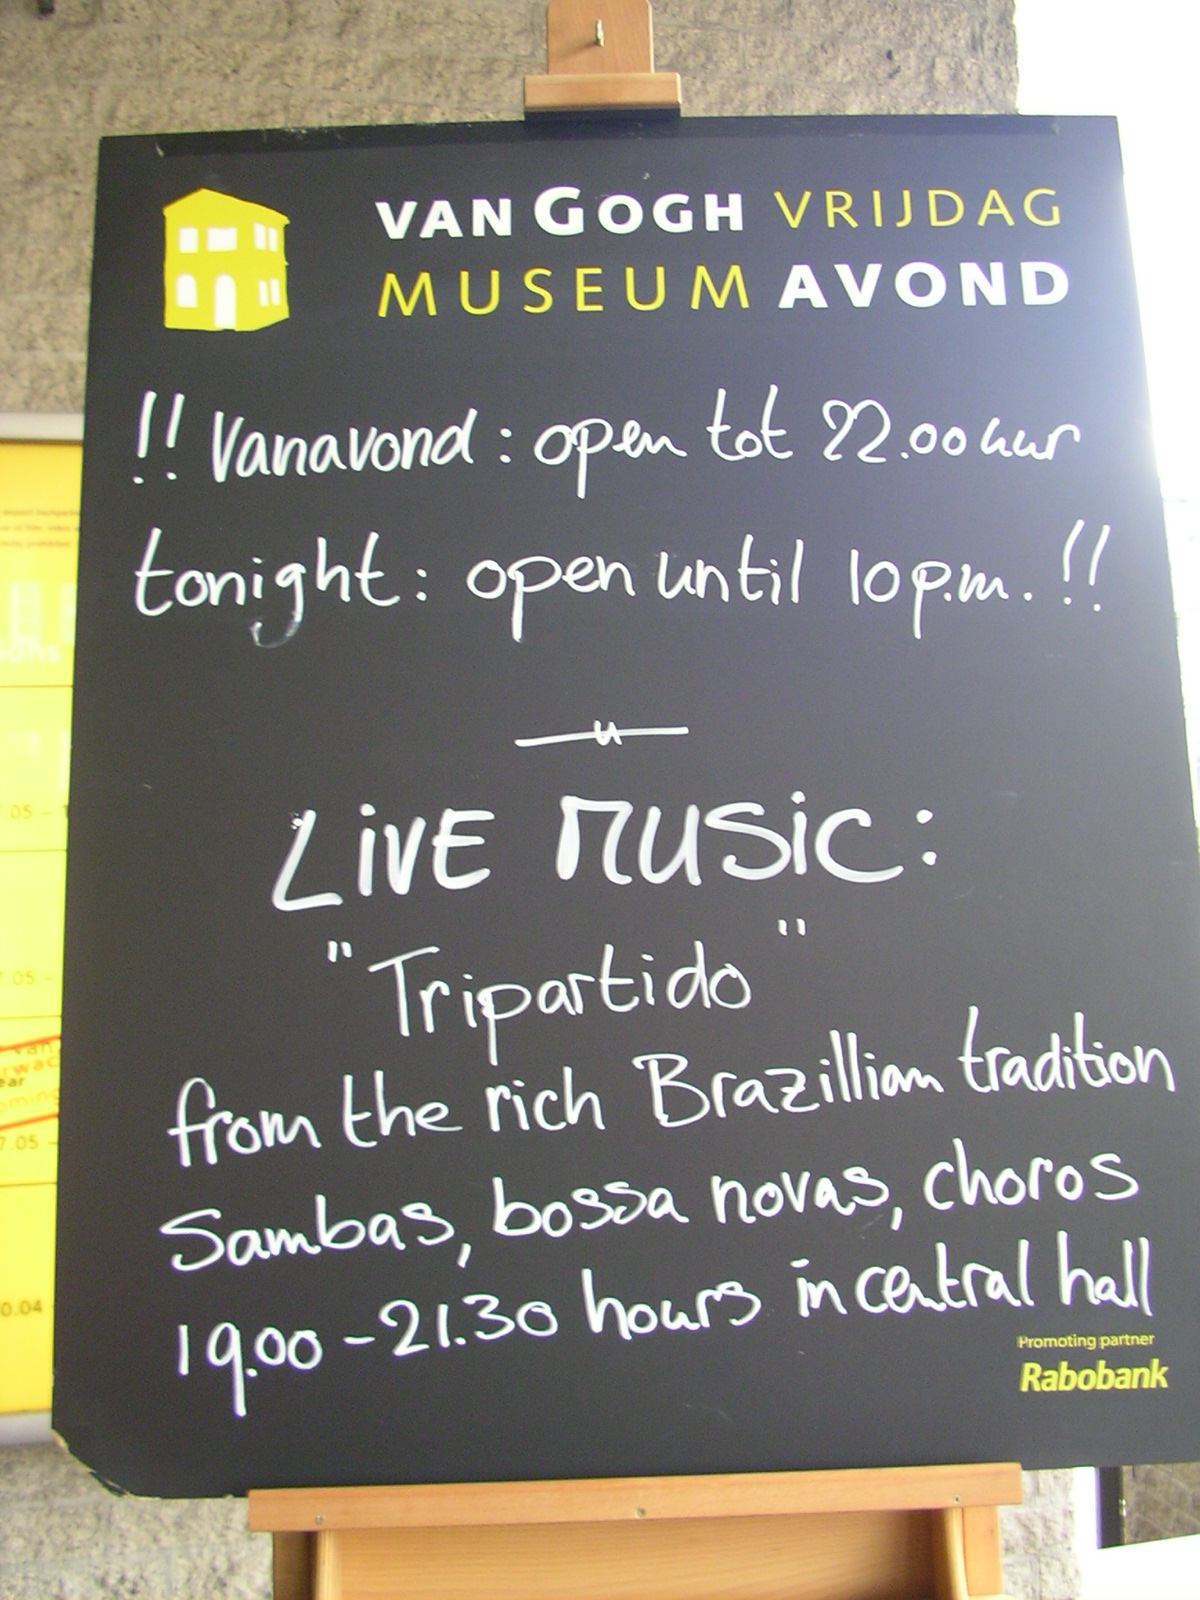 VAN GOGH VRIJDAG
MUSEUM AVOND
!! Vanavond : open tot 22.00 uur
tonight : open until 10 p.m. !!
LiVE MUSiC :
"Tripartido"
from the rich Brazillian tradition
Sambas, bossa novas, choros
19.00 - 21.30 hours in central hall
Promoting partner
Rabobank